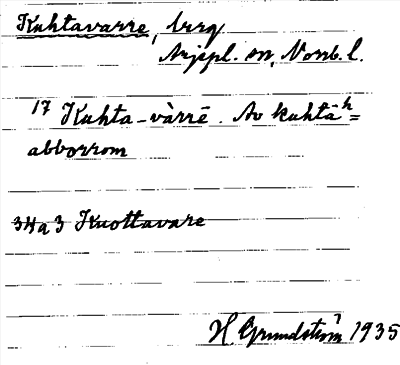 Kuhtavarre, berg
Arjepl. sn, Norrb. l.
17 Kuhta-vàrrē. Av kuhtāʰ =
abborrom
34a3 Kuottavare
H Grundström 1935